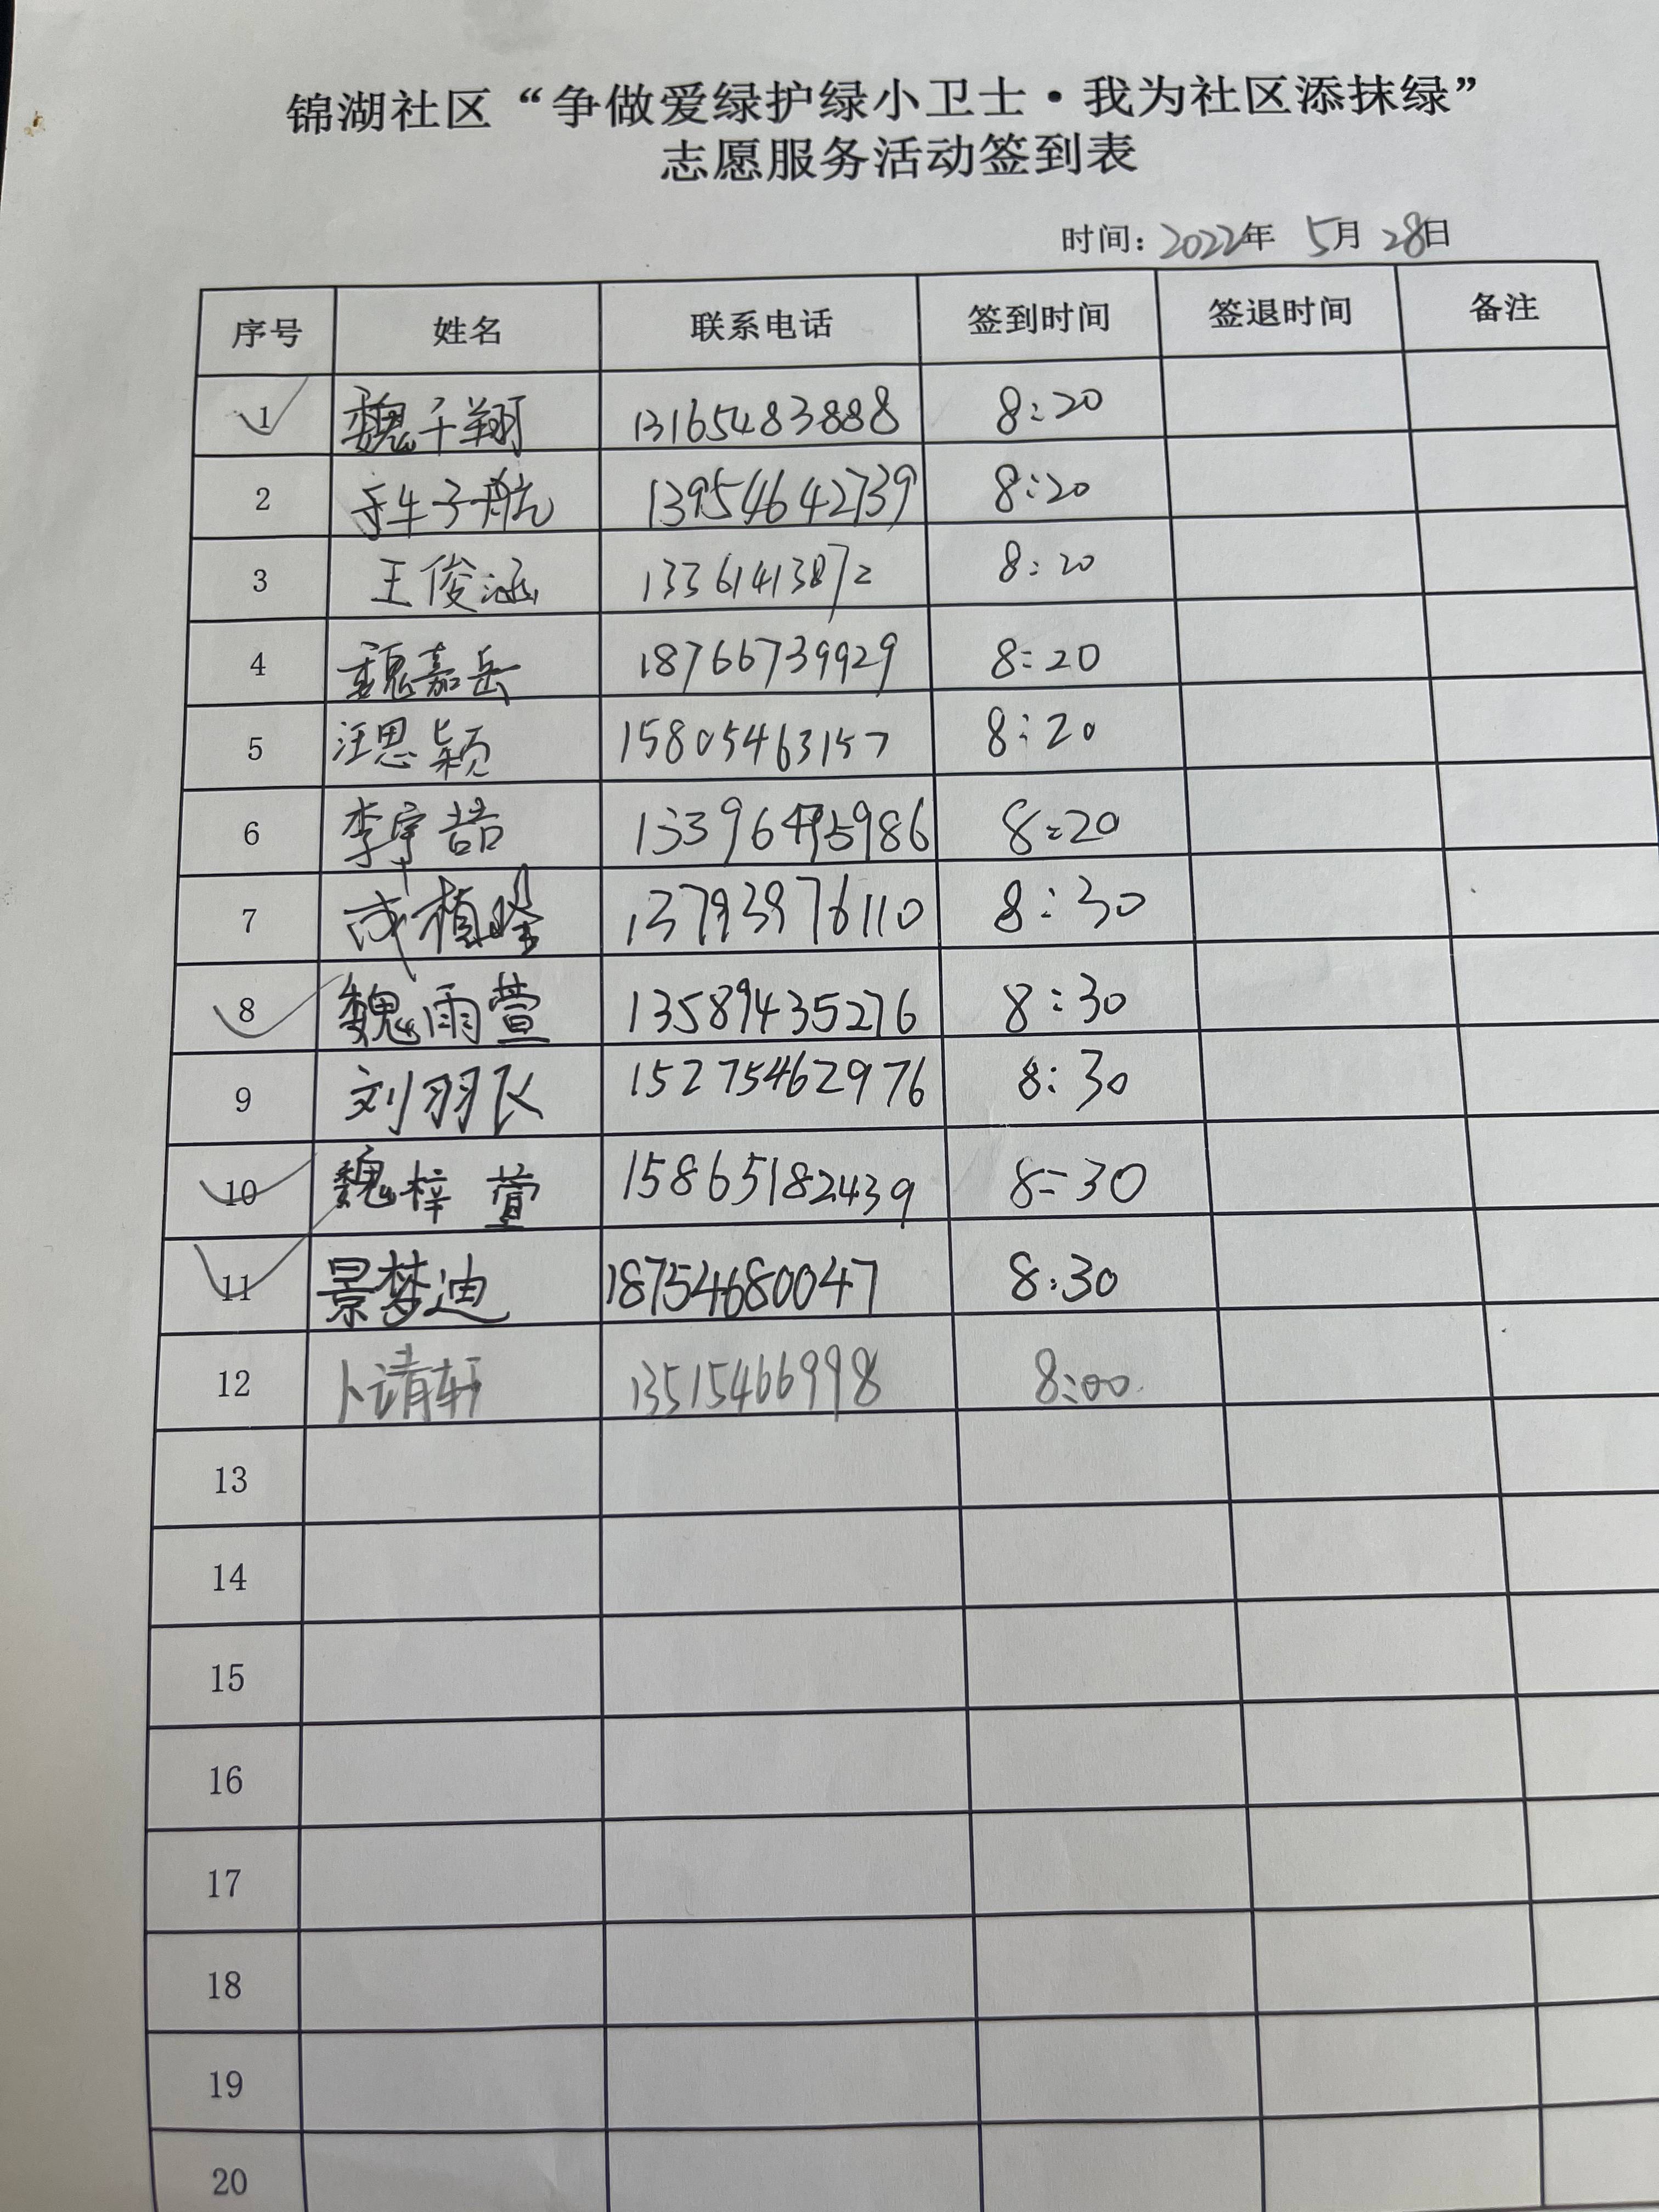 锦湖社区“争做爱绿护绿小卫士·我为社区添抹绿”
志愿服务活动签到表
时间：2022年 5月 28日
序号 姓名 联系电话 签到时间 签退时间 备注
1 魏千翔 13165483888 8:20
2 子航 13954642739 8:20
3 王俊涵 13361413872 8:20
4 魏嘉岳 18766739929 8:20
5 汪思颖 15805463157 8:20
6 李宇喆 8:20
7 13793976110 8:30
8 魏雨萱 13589435276 8:30
9 刘羽 15275462976 8:30
10 魏梓萱 15865182439 8:30
11 景梦迪 18754680047 8:30
12 卜靖轩 13515466998 8:00
13
14
15
16
17
18
19
20